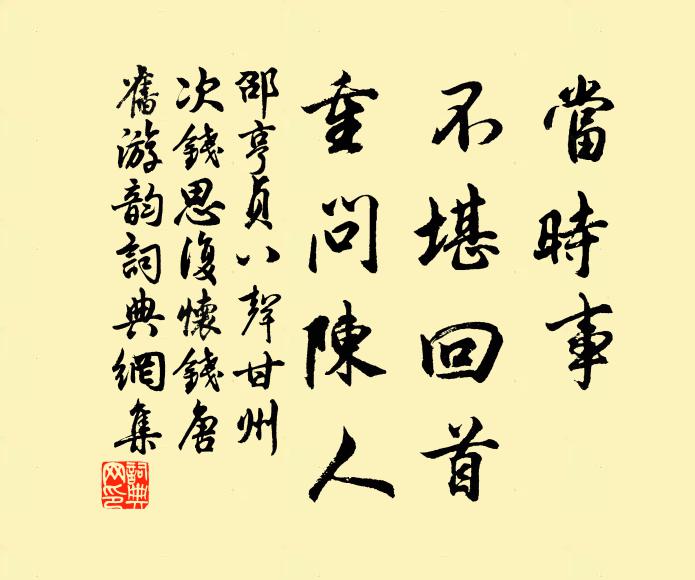 當時事
不堪回首
重問陳人
邵亨貞八聲甘州
次錢思復懷錢唐
舊游韵詞典網集
詞典网印